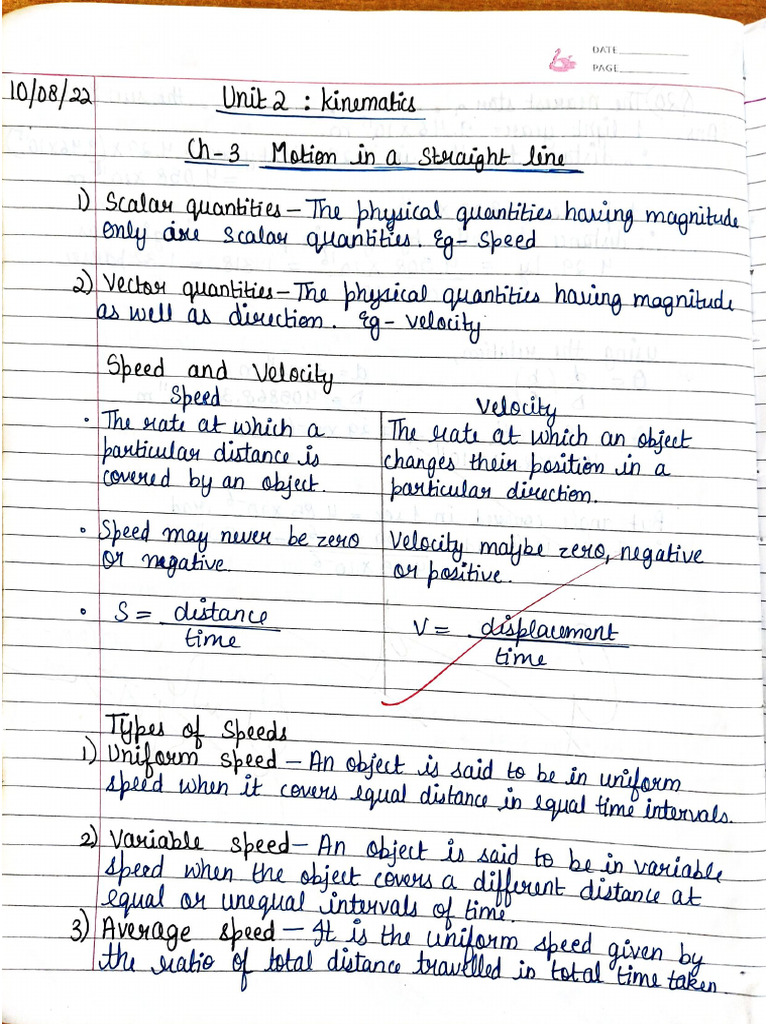 DATE
PAGE
10/08/22
Unit 2 : Kinematics
Ch-3 Motion in a straight line
1) Scalar quantities – The physical quantities having magnitude
only are scalar quantities. Eg- Speed
2) Vector quantities – The physical quantities having magnitude
as well as direction. Eg- velocity
Speed and Velocity
Speed
• The rate at which a
particular distance is
covered by an object.
• Speed may never be zero
or negative.
• S = distance
time
Velocity
The rate at which an object
changes their position in a
particular direction.
Velocity maybe zero, negative
or positive.
V = displacement
time
Types of Speeds
1) Uniform speed – An object is said to be in uniform
speed when it covers equal distance in equal time intervals.
2) Variable speed – An object is said to be in variable
speed when the object covers a different distance at
equal or unequal intervals of time.
3) Average speed – It is the uniform speed given by
the ratio of total distance travelled in total time taken